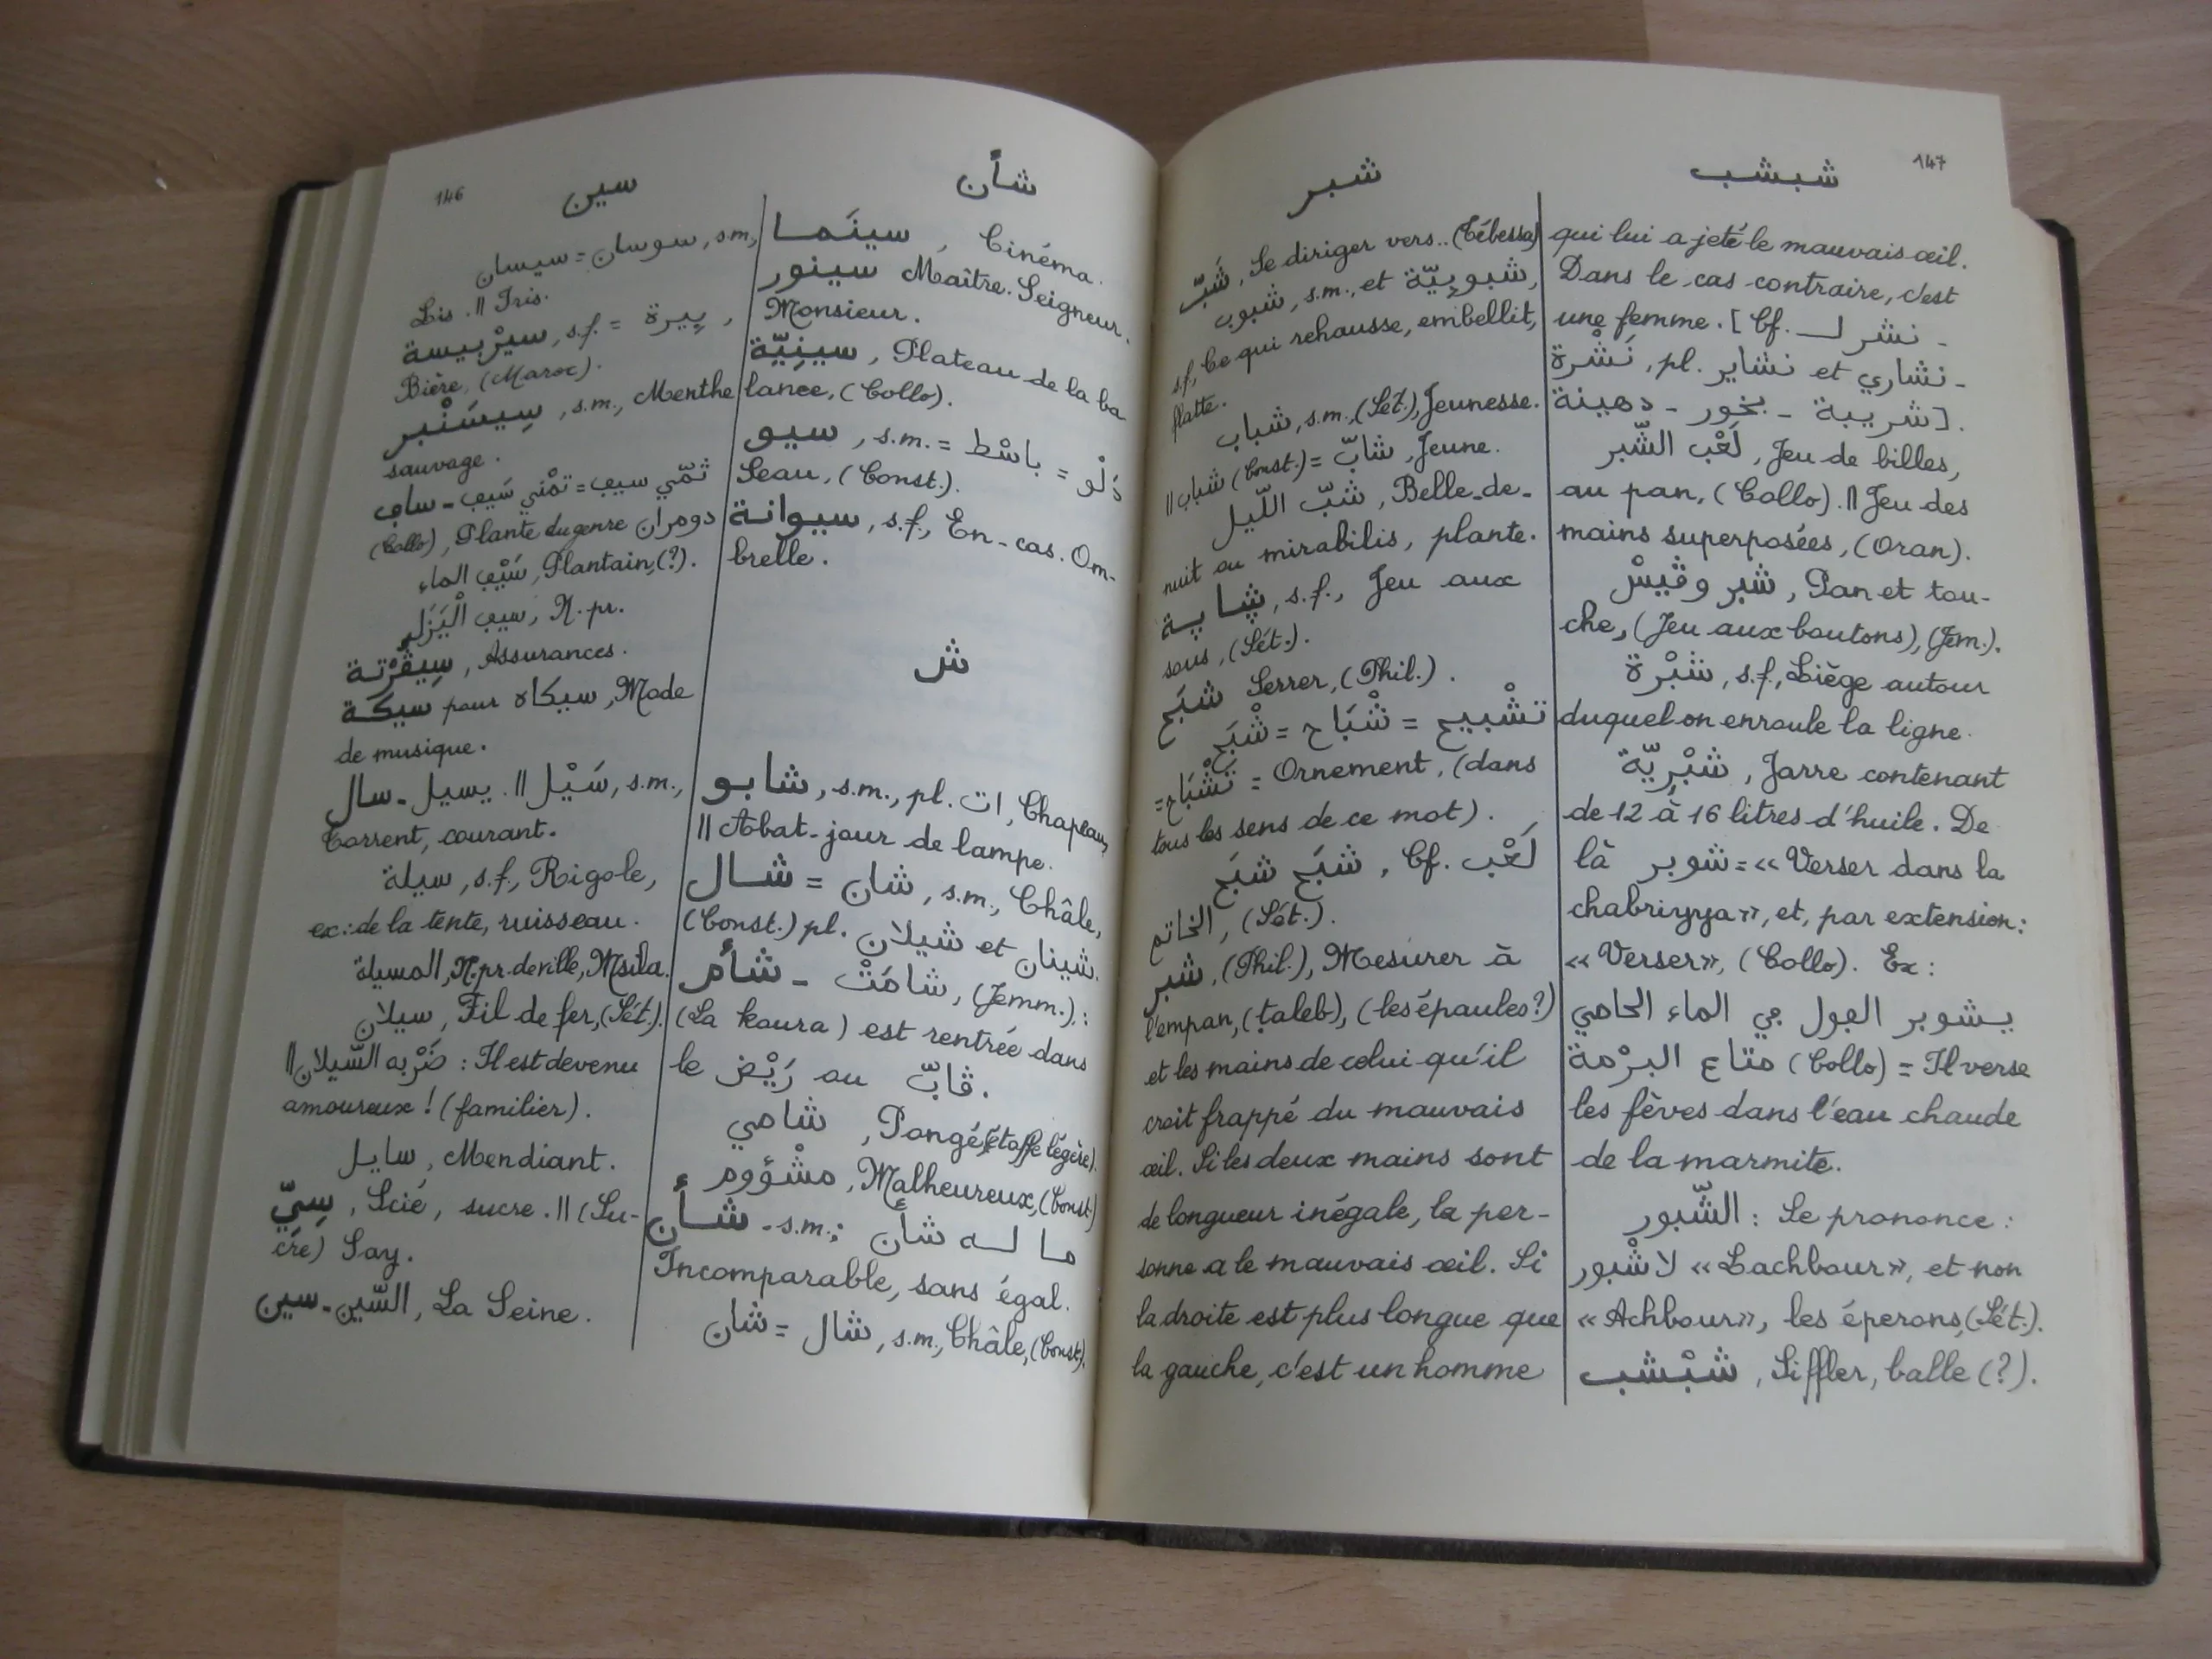 146
سين
شأن
سيسان = سوسان, s.m.,
Lis. || Iris.
سيرْبيسة, s.f. = بيرة,
Bière, (Maroc).
سِيسَنْبر, s.m., Menthe
sauvage.
ساڢ - تمْني سَيڢ = تمّي سيڢ
(Collo), Plante du genre دومران
سَيْڢ الماء, Plantain, (?).
سيڢ, N. pr.
سِيڤُرْتة, Assurances.
سيكة pour سيكاه, Mode
de musique.
سال - يسيل. || سَيْل, s.m.,
Torrent, courant.
سيلة, s.f., Rigole,
ex.: de la tente, ruisseau.
المسيلة, N. pr. de ville, Msila.
سيلان, Fil de fer, (Sét.).
|| ضَرْبه السّيلان : Il est devenu
amoureux ! (familier).
سايل, Mendiant.
سِيّ, Scié, sucre. || (Su-
cre) Say.
سين - السّين, La Seine.
سينَما, Cinéma.
سينور Maître. Seigneur.
Monsieur.
سينِيّة, Plateau de la ba
lance, (Collo).
سيو, s.m. = باسْط = دَلْو
Seau, (Const.).
سيوانة, s.f., En-cas. Om-
brelle.
ش
شابو, s.m., pl. ات, Chapeau,
|| Abat-jour de lampe.
شال = شان, s.m., Châle,
(Const.) pl. شيلان et شينان.
شأم - شامَتْ, (Jemm.) :
(La koura) est rentrée dans
le رَيْض ou ڤابّ.
شامي, Pongé, (étoffe légère).
مشْؤوم, Malheureux, (Const.)
شأن - s.m.; ما له شأن
Incomparable, sans égal.
شان = شال, s.m., Châle, (Const.).
شبر
شبشب
147
شَبّ, Se diriger vers.. (Tébessa)
شبوب, s.m., et شبوبِيّة,
s.f., Ce qui rehausse, embellit,
flatte.
شباب, s.m., (Sét.), Jeunesse.
|| شباب (Const.) = شابّ, Jeune.
شَبّ اللّيل, Belle-de-
nuit ou mirabilis, plante.
شاپة, s.f., Jeu aux
sous, (Sét.).
شبَح Serrer, (Phil.).
شْبَح = شْبَاح = تشْبيح
= تَشْبَاح = Ornement, (dans
tous les sens de ce mot).
شبَح شبَح, Cf. لَعْب
الخاتم, (Sét.).
شبر, (Phil.), Mesurer à
l'empan, (taleb), (les épaules?)
et les mains de celui qu'il
croit frappé du mauvais
œil. Si les deux mains sont
de longueur inégale, la per-
sonne a le mauvais œil. Si
la droite est plus longue que
la gauche, c'est un homme
qui lui a jeté le mauvais œil.
Dans le cas contraire, c'est
une femme. [Cf. نشر لـ -
نَشْرة, pl. نشاير et نشاري -
شريبة - بخور - دهينة].
لَعْب الشّبر, Jeu de billes,
au pan, (Collo). || Jeu des
mains superposées, (Oran).
شبر وڤيسْ, Pan et tou-
che, (Jeu aux boutons), (Jem.).
شبْرة, s.f., Liège autour
duquel on enroule la ligne.
شبْرِيّة, Jarre contenant
de 12 à 16 litres d'huile. De
là شوبر = « Verser dans la
chabriyya », et, par extension:
« Verser », (Collo). Ex :
يشوبر الڢول ڢي الماء الحامي
متاع البرْمة (Collo) = Il verse
les fèves dans l'eau chaude
de la marmite.
الشّبور : Se prononce :
لاشْبور « Lachbour », et non
« Achbour », les éperons, (Sét.).
شبْشب, Siffler, balle (?).